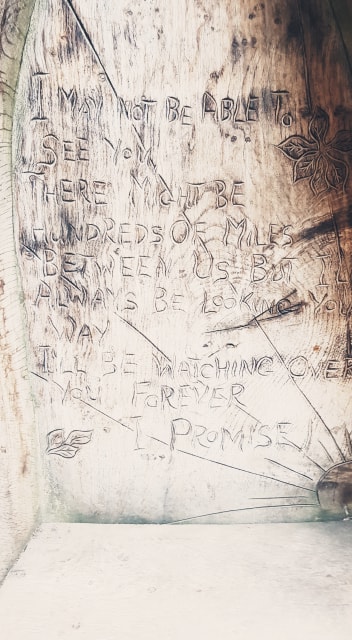 I MAY NOT BE ABLE TO
SEE YOU
THERE MIGHT BE
HUNDREDS OF MILES
BETWEEN US BUT I'LL
ALWAYS BE LOOKING YOU
WAY
I'LL BE WATCHING OVER
YOU FOREVER
I PROMISE!